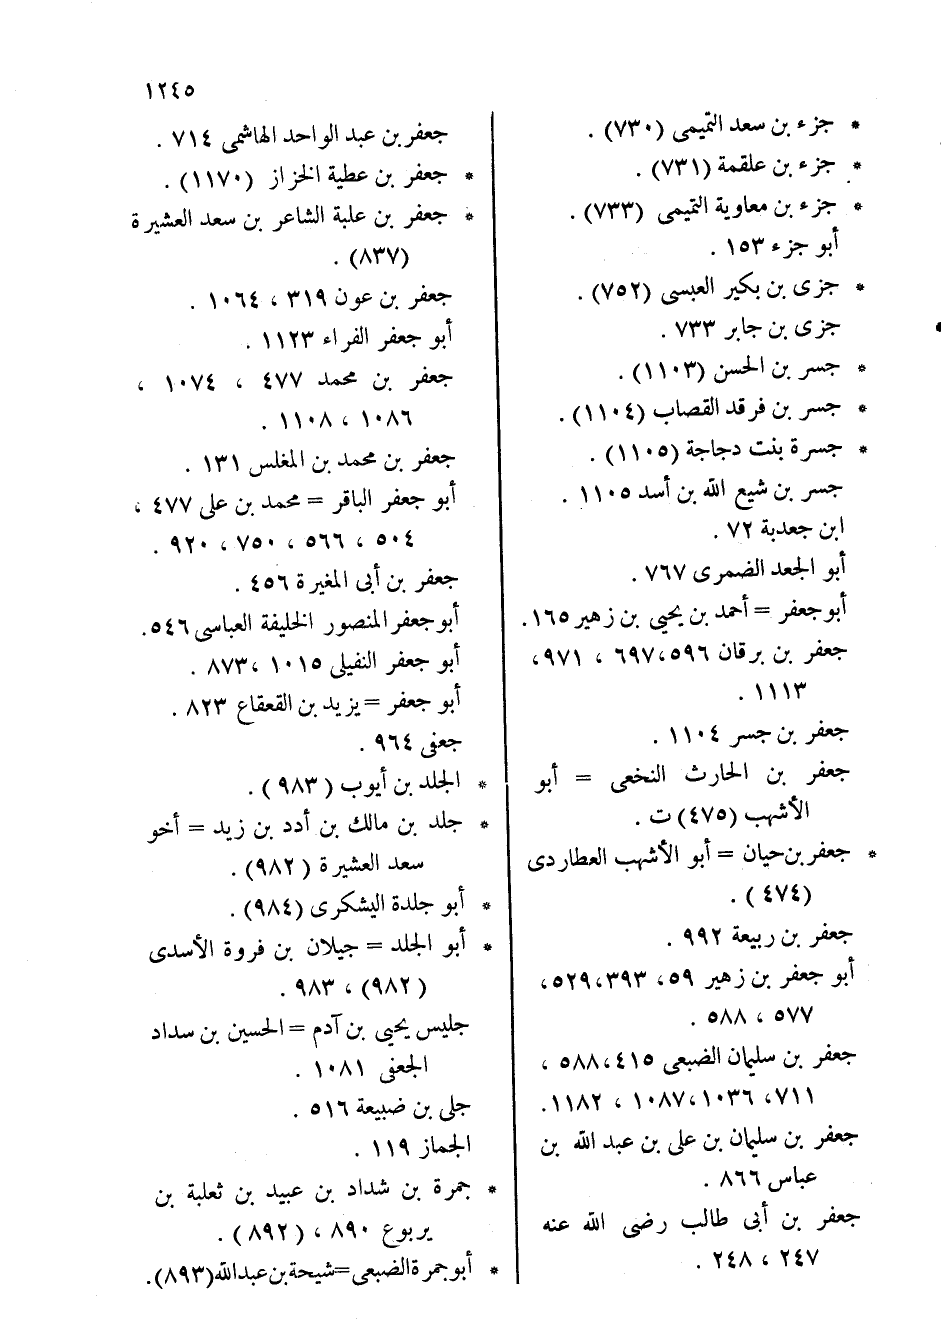 ١٢٤٥
* جزء بن سعد التميمى (٧٣٠) .
* جزء بن علقمة (٧٣١) .
* جزء بن معاوية التميمى (٧٣٣) .
أبو جزء ١٥٣ .
* جزى بن بكير العبسى (٧٥٢) .
جزى بن جابر ٧٣٣ .
* جسر بن الحسن (١١٠٣) .
* جسر بن فرقد القصاب (١١٠٤) .
* جسرة بنت دجاجة (١١٠٥) .
جسر بن شيع الله بن أسد ١١٠٥ .
ابن جعدبة ٧٢ .
أبو الجعد الضمرى ٧٦٧ .
أبو جعفر = أحمد بن يحيى بن زهير ١٦٥ .
جعفر بن برقان ٥٩٦ ، ٦٩٧ ، ٩٧١ ،
١١١٣ .
جعفر بن جسر ١١٠٤ .
جعفر بن الحارث النخعى = أبو
الأشهب (٤٧٥) ت .
* جعفر بن حيان = أبو الأشهب العطاردى
(٤٧٤) .
جعفر بن ربيعة ٩٩٢ .
أبو جعفر بن زهير ٥٩ ، ٣٩٣ ، ٥٢٩ ،
٥٧٧ ، ٥٨٨ .
جعفر بن سليمان الضبعى ٤١٥ ، ٥٨٨ ،
٧١١ ، ١٠٣٦ ، ١٠٨٧ ، ١١٨٢ .
جعفر بن سليمان بن على بن عبد الله بن
عباس ٨٦٦ .
جعفر بن أبى طالب رضى الله عنه
٢٤٧ ، ٢٤٨ .
جعفر بن عبد الواحد الهاشمى ٧١٤ .
* جعفر بن عطية الخزاز (١١٧٠) .
* جعفر بن علبة الشاعر بن سعد العشيرة
(٨٣٧) .
جعفر بن عون ٣١٩ ، ١٠٦٤ .
أبو جعفر الفراء ١١٢٣ .
جعفر بن محمد ٤٧٧ ، ١٠٧٤ ،
١٠٨٦ ، ١١٠٨ .
جعفر بن محمد بن المغلس ١٣١ .
أبو جعفر الباقر = محمد بن على ٤٧٧ ،
٥٠٤ ، ٥٦٦ ، ٧٥٠ ، ٩٢٠ .
جعفر بن أبى المغيرة ٤٥٦ .
أبو جعفر المنصور الخليفة العباسى ٥٤٦ .
أبو جعفر النفيلى ١٠١٥ ، ٨٧٣ .
أبو جعفر = يزيد بن القعقاع ٨٢٣ .
جعفى ٩٦٤ .
* الجلد بن أيوب (٩٨٣) .
* جلد بن مالك بن أدد بن زيد = أخو
سعد العشيرة (٩٨٢) .
* أبو جلدة اليشكرى (٩٨٤) .
* أبو الجلد = جيلان بن فروة الأسدى
(٩٨٢) ، ٩٨٣ .
جليس يحيى بن آدم = الحسين بن سداد
الجعفى ١٠٨١ .
جلى بن ضبيعة ٥١٦ .
الجماز ١١٩ .
* جمرة بن شداد بن عبيد بن ثعلبة بن
يربوع ٨٩٠ ، (٨٩٢) .
* أبو جمرة الضبعى = شيحة بن عبد الله (٨٩٣) .